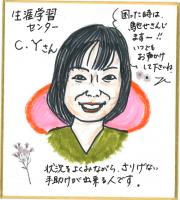 生涯学習
センター
C.Yさん
困った時は、
馳せさんじ
ますー!!
いつでも
お声かけ
して下さいね
状況をよくみながら、さりげない
手助けが出来る人です。